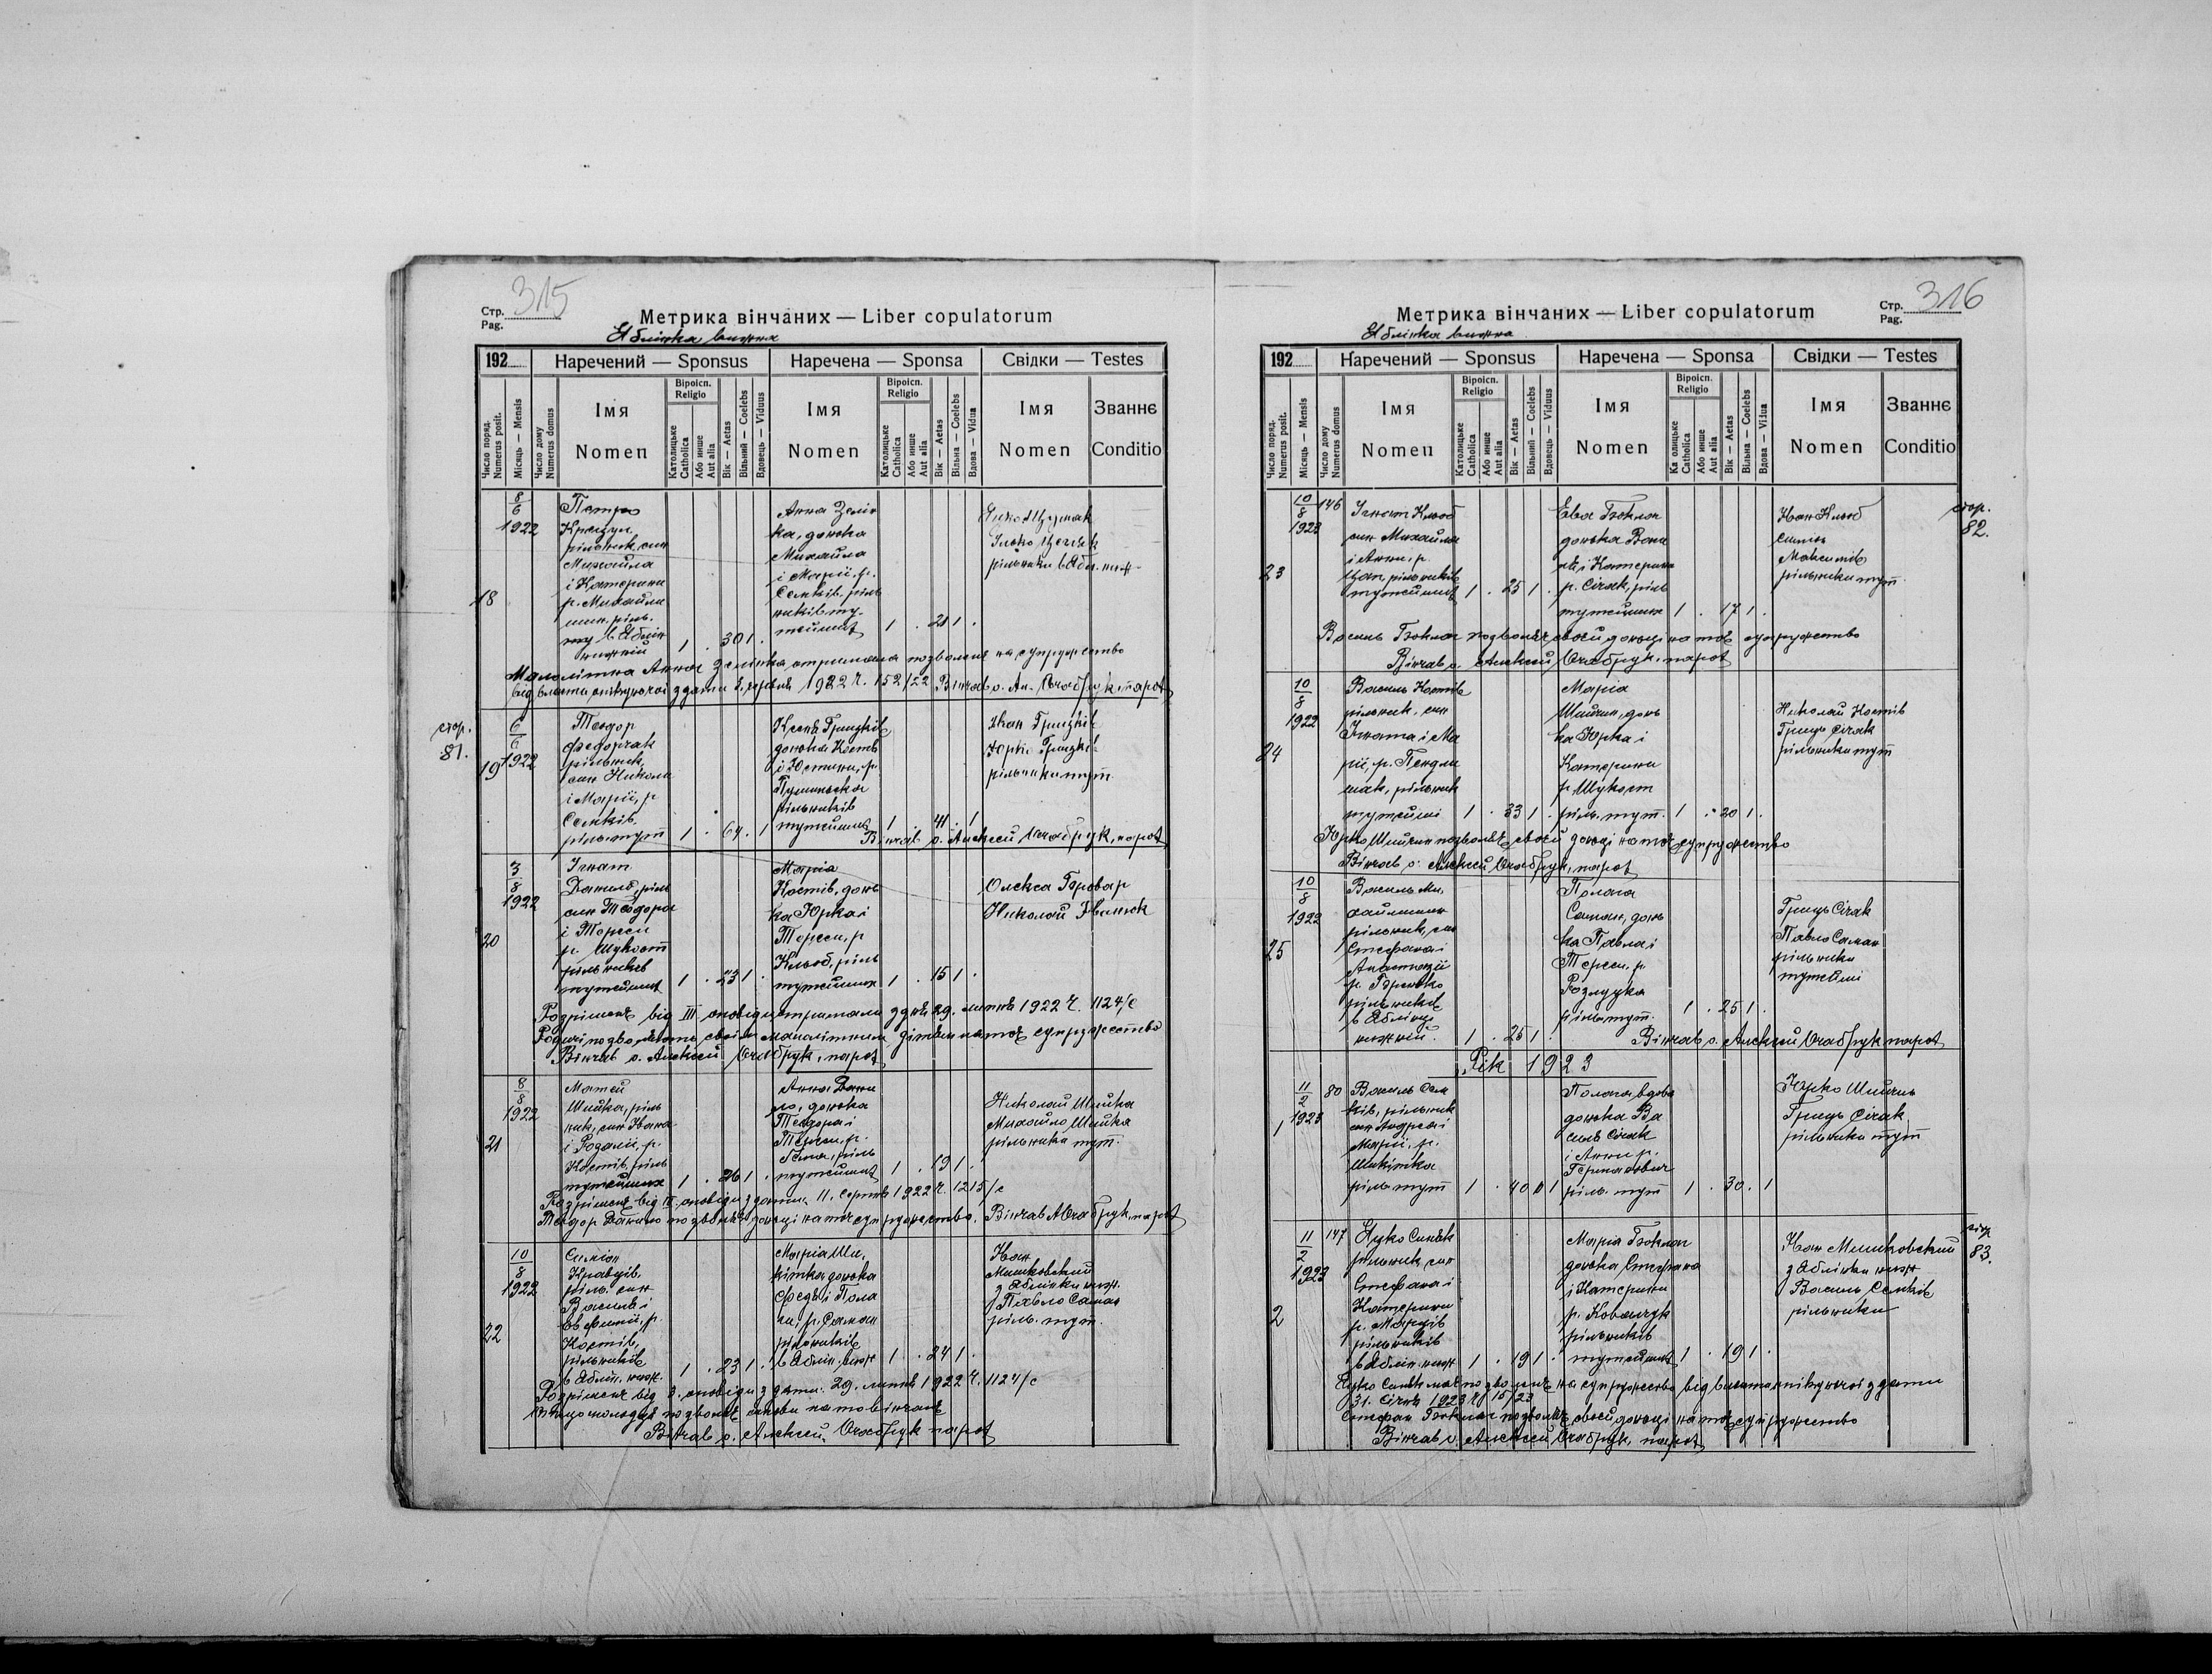 Стр. 315
Pag.
Метрика вінчаних — Liber copulatorum
Яблінка вижна
192
Наречений — Sponsus
Наречена — Sponsa
Свідки — Testes
Число поряд. Numerus posit.
Місяць — Mensis
Число дому Numerus domus
Імя Nomen
Віроісп. Religio
Католицьке Catholica
Або инше Aut alia
Вік — Aetas
Вільний — Coelebs
Вдовець — Viduus
Імя Nomen
Віроісп. Religio
Католицьке Catholica
Або инше Aut alia
Вік — Aetas
Вільна — Coelebs
Вдова — Vidua
Імя Nomen
Званнє Conditio
18
8/6
1922
Петро
рільник, син
Михайла
і Катерини
р. Михайли
шин, ріль.
в Яблін
нижній
1 . 30 1 .
Анна Зелін
ка, донька
Михайла
і Марії, р.
Сенків, ріль
ників ту-
тейших
1 . 21 1 .
рільники в Ябл. ниж.
Малолітна Анна Зелінка отримала позволенє на супружество
від власти опікунчої з дати 2. червня 1922 Ч. 152/22 Вінчав о. Ал. парох
стор.
81.
19
6/6
1922
Теодор
Федорчак
рільник,
син Николи
і Марії, р
Сенків.
ріль. тут
1 . 64 . 1
Ксеня Грицків
донька Костя
і Юстини, р.
рільників
тутейших
1 . 41 . 1
Іван Грицків
Юрко Грицків
рільники тут.
Вінчав о. Алексей парох
20
3/8
1922
Ігнат
Данило, ріль
син Теодора
і Тореси
р. Шукост
рільників
тутейших
1 . 23 1 .
Марія
Костів, донь
ка Юрка і
Тореси, р
Клюб, ріль
тутейших
1 . 15 1 .
Олекса Бровар
Николай Іванюк
Розрішенє від III. оповіди отримали з дня 29. липня 1922 Ч. 1124/с
Родичі позволяють своїм малолітним дітям на тоє супружество
Вінчав о. Алексей парох
21
8/8
1922
Матей
Шийка, ріль
ник, син Івана
і Розалії, р.
Костів, ріль
тутейших
1 . 26 1 .
Анна Дани
ло, донька
Теодора і
Тереси, р.
ріль
тутейших
1 . 19 1 .
Николай Шийка
Михайло Шийка
рільники тут.
Розрішенє від III. оповіди з дати 11. серпня 1922 Ч. 1215/с
Теодор Данило позволяє доньці на тоє супружество. Вінчав А парох
22
10/8
1922
Симіон
Кравців,
ріль. син
Василя і
Костів,
рільників
в Яблін. ниж.
1 . 23 1 .
Марія Ши,
кітка донька
Федя і Пола
ги, р. Саман
рільників
в Яблін. вижн
1 . 24 1 .
Іван
Мишковский
з Яблінки ниж.
Павло Саман
ріль. тут.
Розрішенє від 3. оповіди з дати. 29. липня 1922 Ч. 1124/с
позволяє синови на то вінчанє
Вінчав о. Алексей парох
Стр. 316
Pag.
Метрика вінчаних — Liber copulatorum
Яблінка вижна
192
Наречений — Sponsus
Наречена — Sponsa
Свідки — Testes
Число поряд. Numerus posit.
Місяць — Mensis
Число дому Numerus domus
Імя Nomen
Віроісп. Religio
Католицьке Catholica
Або инше Aut alia
Вік — Aetas
Вільний — Coelebs
Вдовець — Viduus
Імя Nomen
Віроісп. Religio
Ка олицьке Catholica
Або инше Aut alia
Вік — Aetas
Вільна — Coelebs
Вдова — Vidua
Імя Nomen
Званнє Conditio
стор.
82.
23
10/8
1923
146
Ігнат Клюб
син Михайла
і Анни, р.
Цап, рільників
тутейших
1 . 25 1 .
Ева Боклаг
донька Васи
ля і Катерини
р. Сігак, ріль
тутейших
1 . 17 1 .
Іван Клюб
Максимів
рільники тут.
Василь Боклаг позволяє своєй доньці на тоє супружество
Вінчав о. Алексей парох
24
10/8
1922
Василь Костів
рільник, син
Ігната і Ма
рії, р. Пенди
шак, рільник
тутейші
1 . 33 1 .
Марія
Шийчин, донь
ка Юрка і
Катерини
р. Шукост
ріль. тут.
1 . 20 1 .
Николай Костів
Гриць Сігак
рільники тут
Юрко Шийчин позволяє своєй доньці на тоє супружество
Вінчав о. Алексей парох
25
10/8
1922
Василь Ми,
хайлишин
рільник, син
Стефана і
Анастазії
рільників
в Яблінці
нижній.
1 . 25 1
Полага
Саман, донь
ка Павла і
Тереси, р.
Розлуцка
ріль. тут.
1 . 25 1 .
Гриць Сігак
Павло Саман
рільники
тутейші
Вінчав о. Алексей парох
Рік 1923
1
11/2
1923
80
Василь Сен
ків, рільник
син Андрея і
Марії, р.
Шикітка
ріль. тут
1 . 40 1
Полага, вдова
донька Ва
силя Сігак
і Анни р.
Германович
ріль. тут
1 . 30 . 1
Юрко Шийчин
Гриць Сігак
рільники тут
стор
83.
2
11/2
1923
147
Яцко Синяк
рільник, син
Стефана і
Катерини
р. Мандів
рільників
в Яблін. ниж
1 . 19 1 .
Марія Боклаг
донька Стефана
і Катерини
р. Ковальчук
рільників
тутейших
1 . 19 1 .
Іван Мишковский
з Яблінки ниж
Василь Сенків
рільники
Яцко Синяк має позволенє на супружество від власти опікунчої з дати
31. січня 1923 Ч 15/23
Стефан Боклаг позволяє своєй доньці на тоє супружество
Вінчав о. Алексей парох